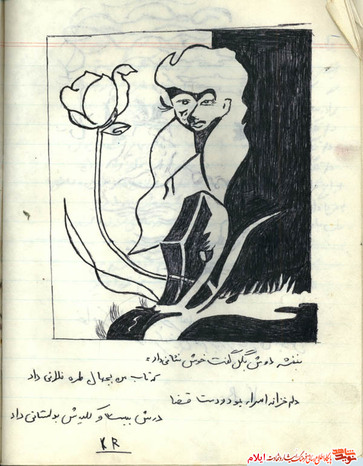 بنفشه دوش بگل گفت خوش نشانی داد
که تاب من بجهان طره فلانی داد
دلم خزانه اسرار بود و دست قضا
درش ببست و کلیدش بدلستانی داد
KR
ایلام